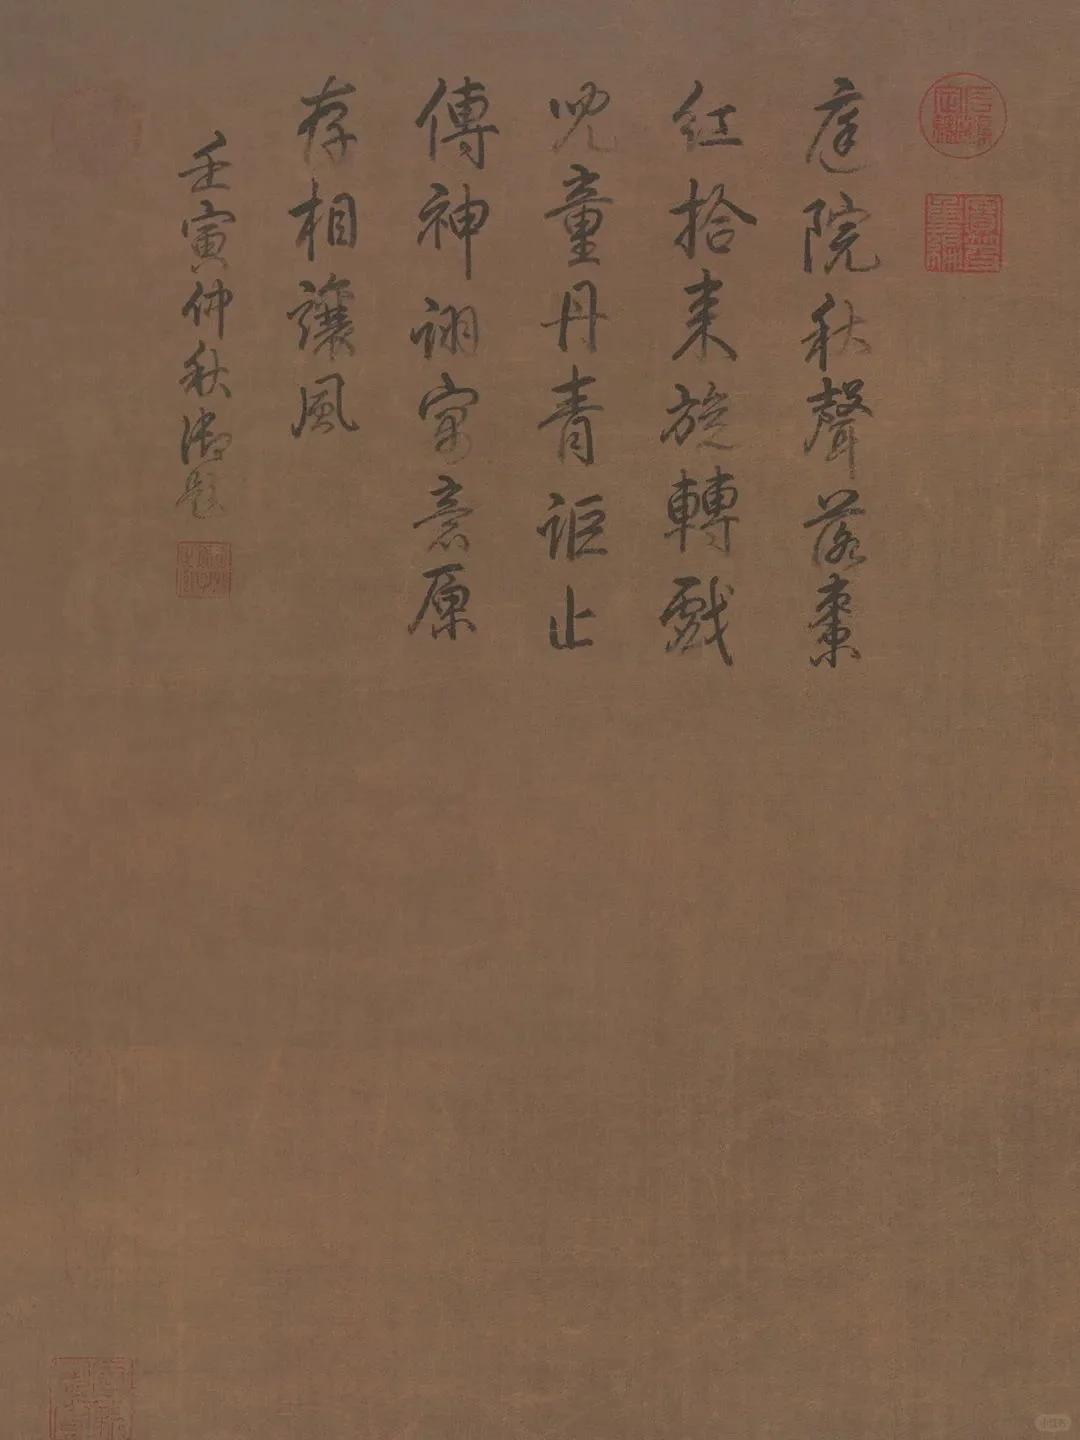 庭院秋聲落棗
紅拾来旋轉戲
兒童丹青詎止
傳神詡寓意原
存相讓風
壬寅仲秋御題
小红书